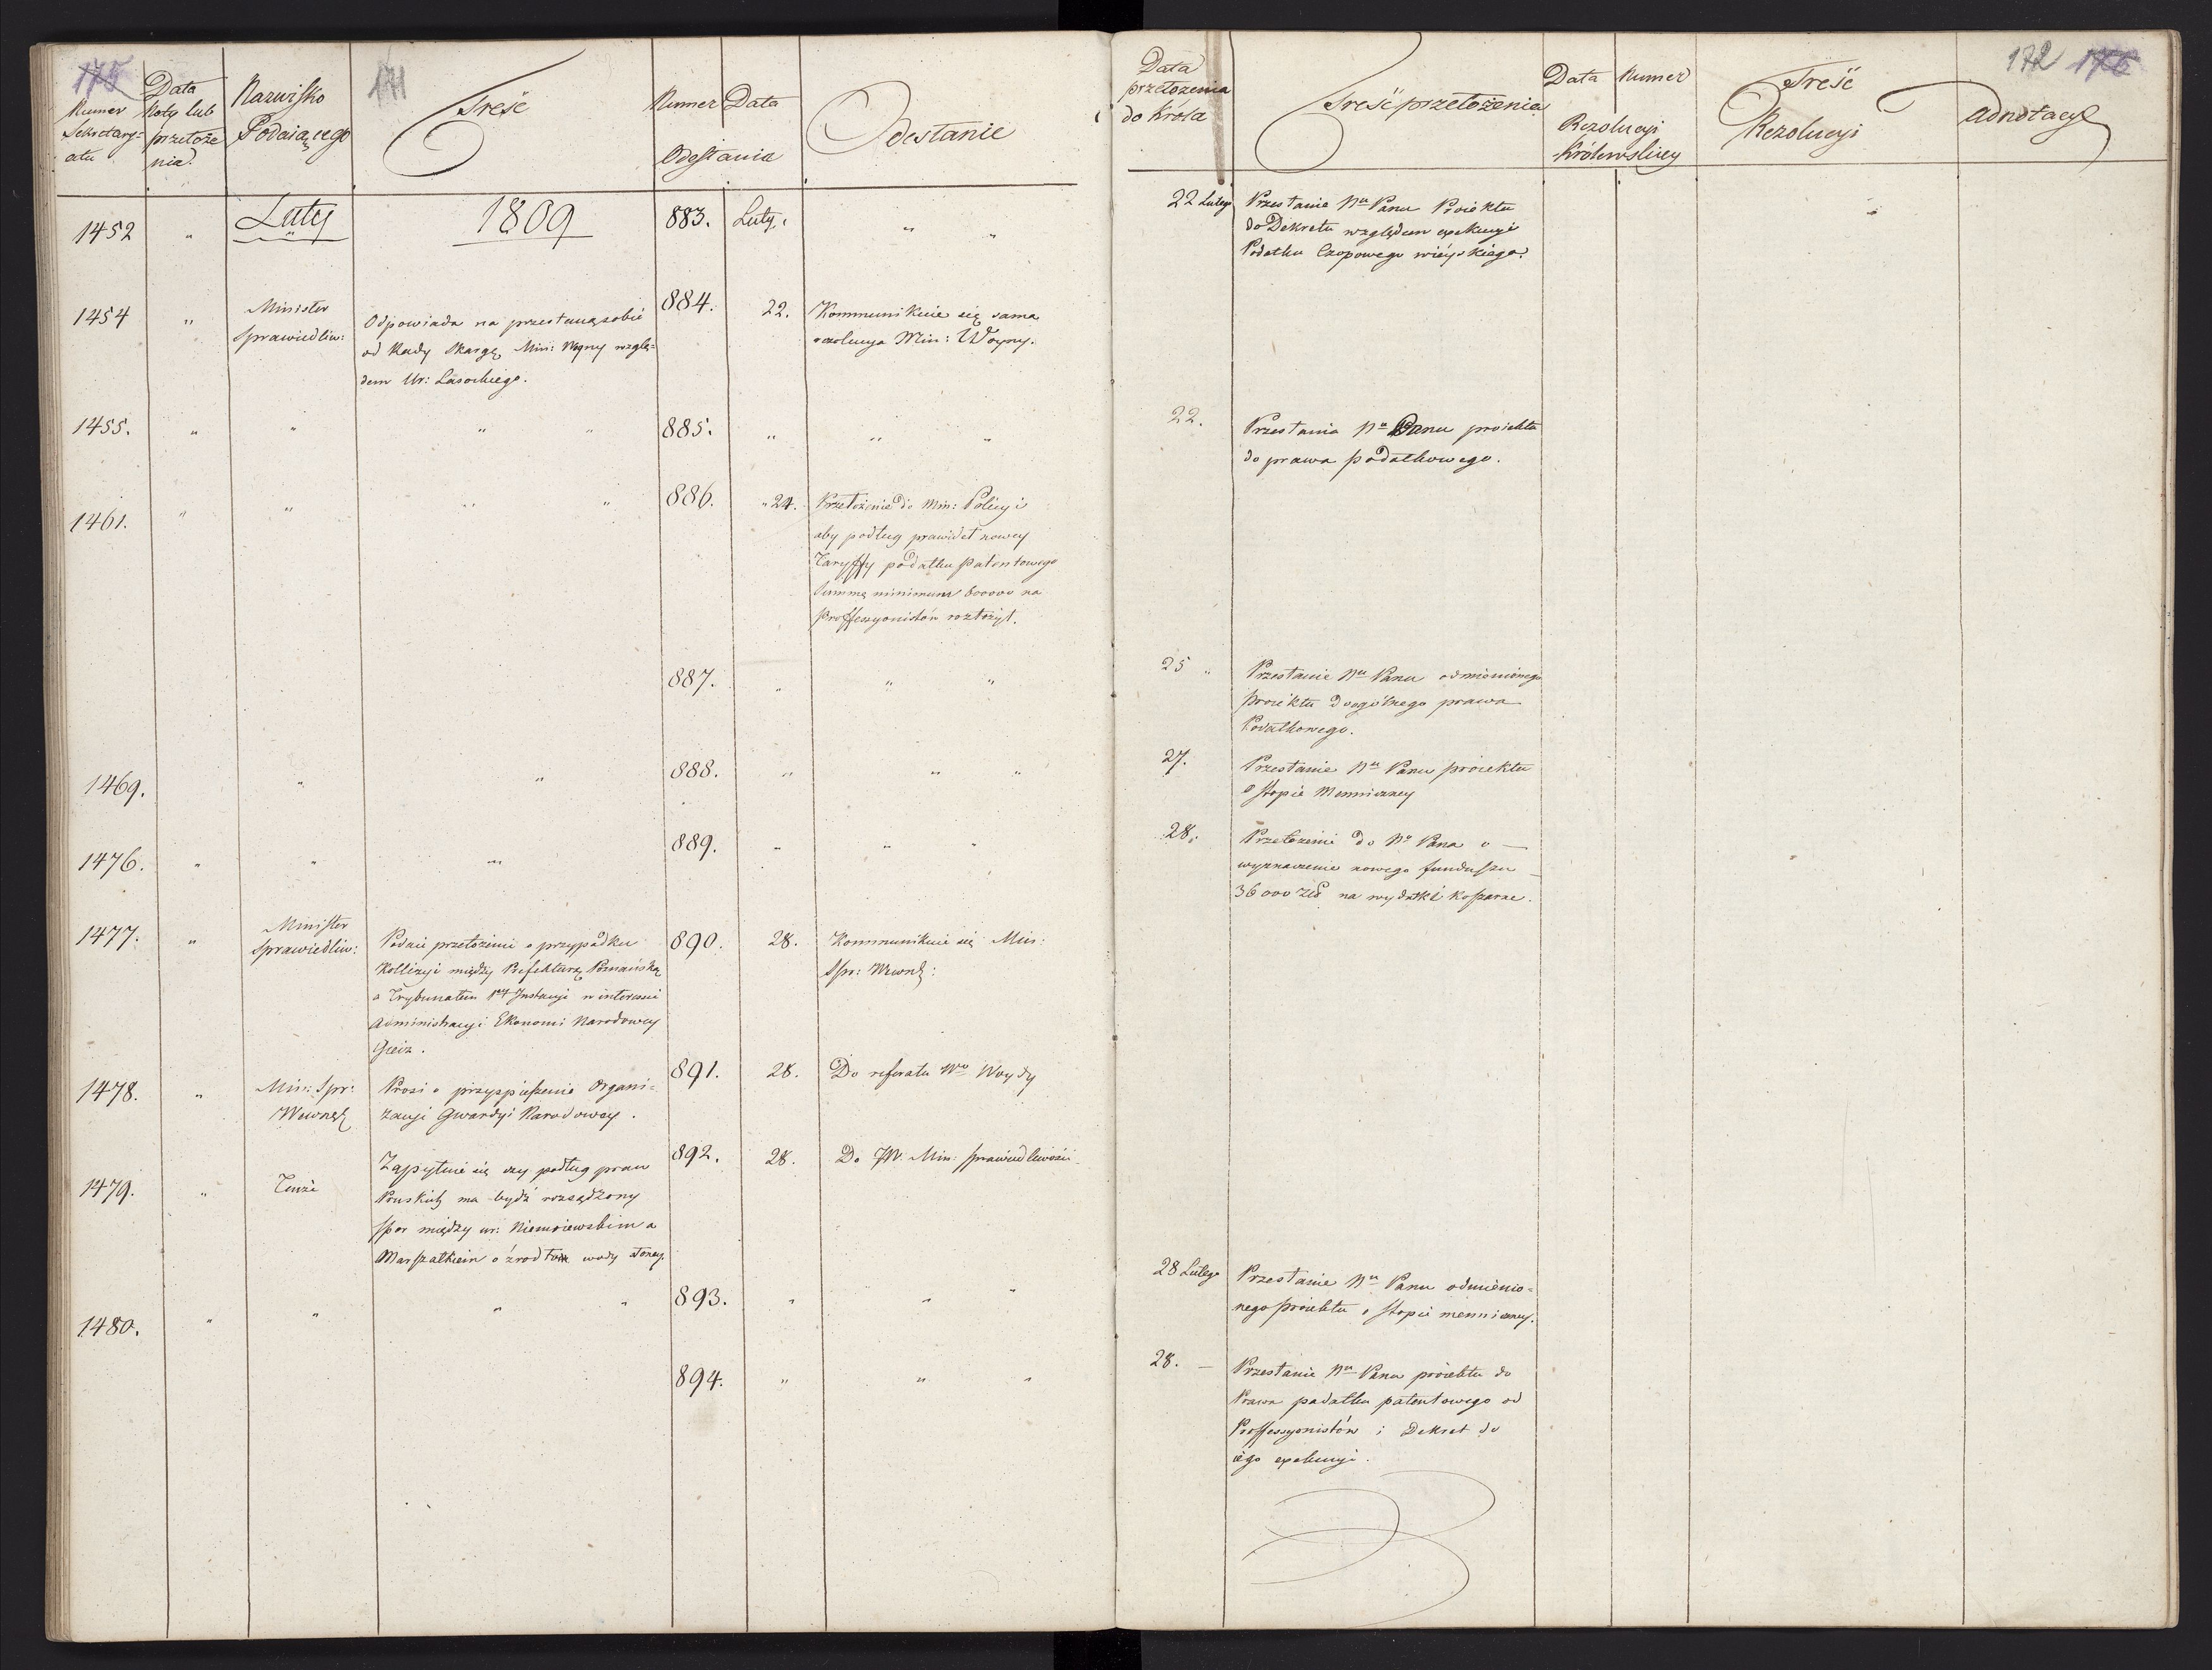 175
171
Numer
Sekretary=
atu
Data
Noty lub
przełoże
nia.
Nazwisko
Podaiącego
Treść
Numer Data
Odesłania
Odesłanie
1452 " Luty 1809 883. Luty. " "
1454 " Minister
Sprawiedliw:
Odpowiada na przesłaną sobie
od Rady Skargę Min: Woyny wzglę=
dem Ur: Lasockiego.
884. 22. Kommunikuie się sama
rezolucya Min: Woyny.
1455. " " " " 885. " " "
1461. " " " " 886. " 24. Przełożenie do Min: Policyi
aby podług prawideł nowey
Taryffy podatku patentowego
Summę minimum 600000 na
Proffessyonistów rozłożył.
887. " " "
1469. " " 888. " " "
1476. " " " 889. " " "
1477. " Minister
Sprawiedliw:
Podaie przełożenie o przypadku
Kollizyi między Prefekturą Poznańską
a Trybunałem 1ey Instancyi w interessie
Administracyi Ekonomi Narodowey
890. 28. Kommunikuie się Min:
Spr: Wewnę:
1478. " Min: Spr:
Wewnętz
Prosi o przyspieszenie Organi=
zacyi Gwardyi Narodowey.
891. 28. Do referatu Wo Woydy
1479. " Tenże
Zapytuie się czy podług praw
Pruskich ma bydź rozsądzony
spor między ur: Niemoiewskim a
Marszałkiem o źrodło wody słoney.
892. 28. Do JW. Min: Sprawiedliwości
1480. " " " " 893. " " "
894. " " "
172 176
Data
przełożenia
do Króla
Treść przełożenia
Data Numer
Rezolucyi
Królewskiey
Treść
Rezolucyi
Adnotacye
22 Lutego Przesłanie Nu Panu Proiektu
do Dekretu względem exekucyi
Podatku Czopowego wieyskiego.
22. Przesłania Nu Panu proiektu
do prawa podatkowego.
25 " Przesłanie Nu Panu odmienionego
proiektu do ogólnego prawa
Podatkowego.
27. Przesłanie Nu Panu proiektu
o stopie Menniczney
28. Przełożenie do No Pana o —
wyznaczenie nowego funduszu —
36000 Złł na wydatki koszarne.
28 Lutego Przesłanie Nu Panu odmienio=
nego proiektu o stopie menniczney.
28. — Przesłanie Nu Panu proiektu do
Prawa podatku patentowego od
Proffessyonistów i Dekret do
iego exekucyi.